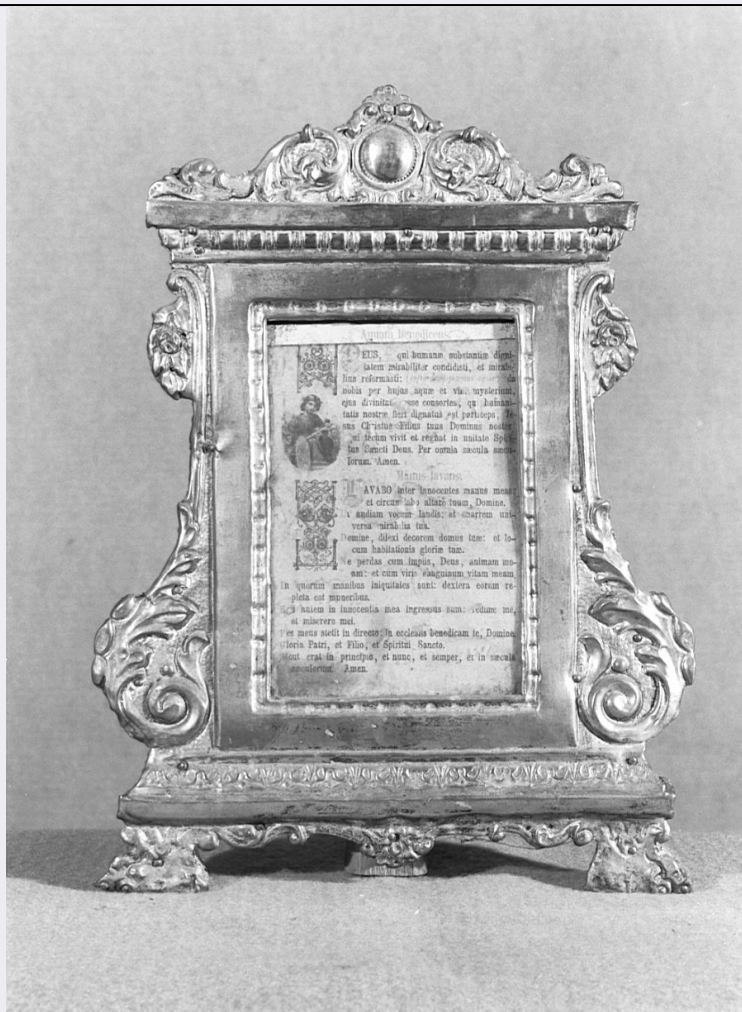 Aquam benedicens.
DEUS, qui humanæ substantiæ digni-
tatem mirabiliter condidisti, et mirabi-
lius reformasti: da
nobis per hujus aquæ et vini mysterium,
ejus divinitatis esse consortes, qui humani-
tatis nostræ fieri dignatus est particeps, Je-
sus Christus Filius tuus Dominus noster
qui tecum vivit et regnat in unitate Spiri-
tus Sancti Deus. Per omnia sæcula sæcu-
lorum. Amen.
Manus lavans.
LAVABO inter innocentes manus meas
et circumdabo altare tuum, Domine.
Ut audiam vocem laudis: et enarrem uni-
versa mirabilia tua.
Domine, dilexi decorem domus tuæ: et lo-
cum habitationis gloriæ tuæ.
Ne perdas cum impiis, Deus, animam me-
am: et cum viris sanguinum vitam meam
In quorum manibus iniquitates sunt: dextera eorum re-
pleta est muneribus.
Ego autem in innocentia mea ingressus sum: redime me,
et miserere mei.
Pes meus stetit in directo: in ecclesiis benedicam te, Domine
Gloria Patri, et Filio, et Spiritui Sancto.
Sicut erat in principio, et nunc, et semper, et in sæcula
sæculorum. Amen.